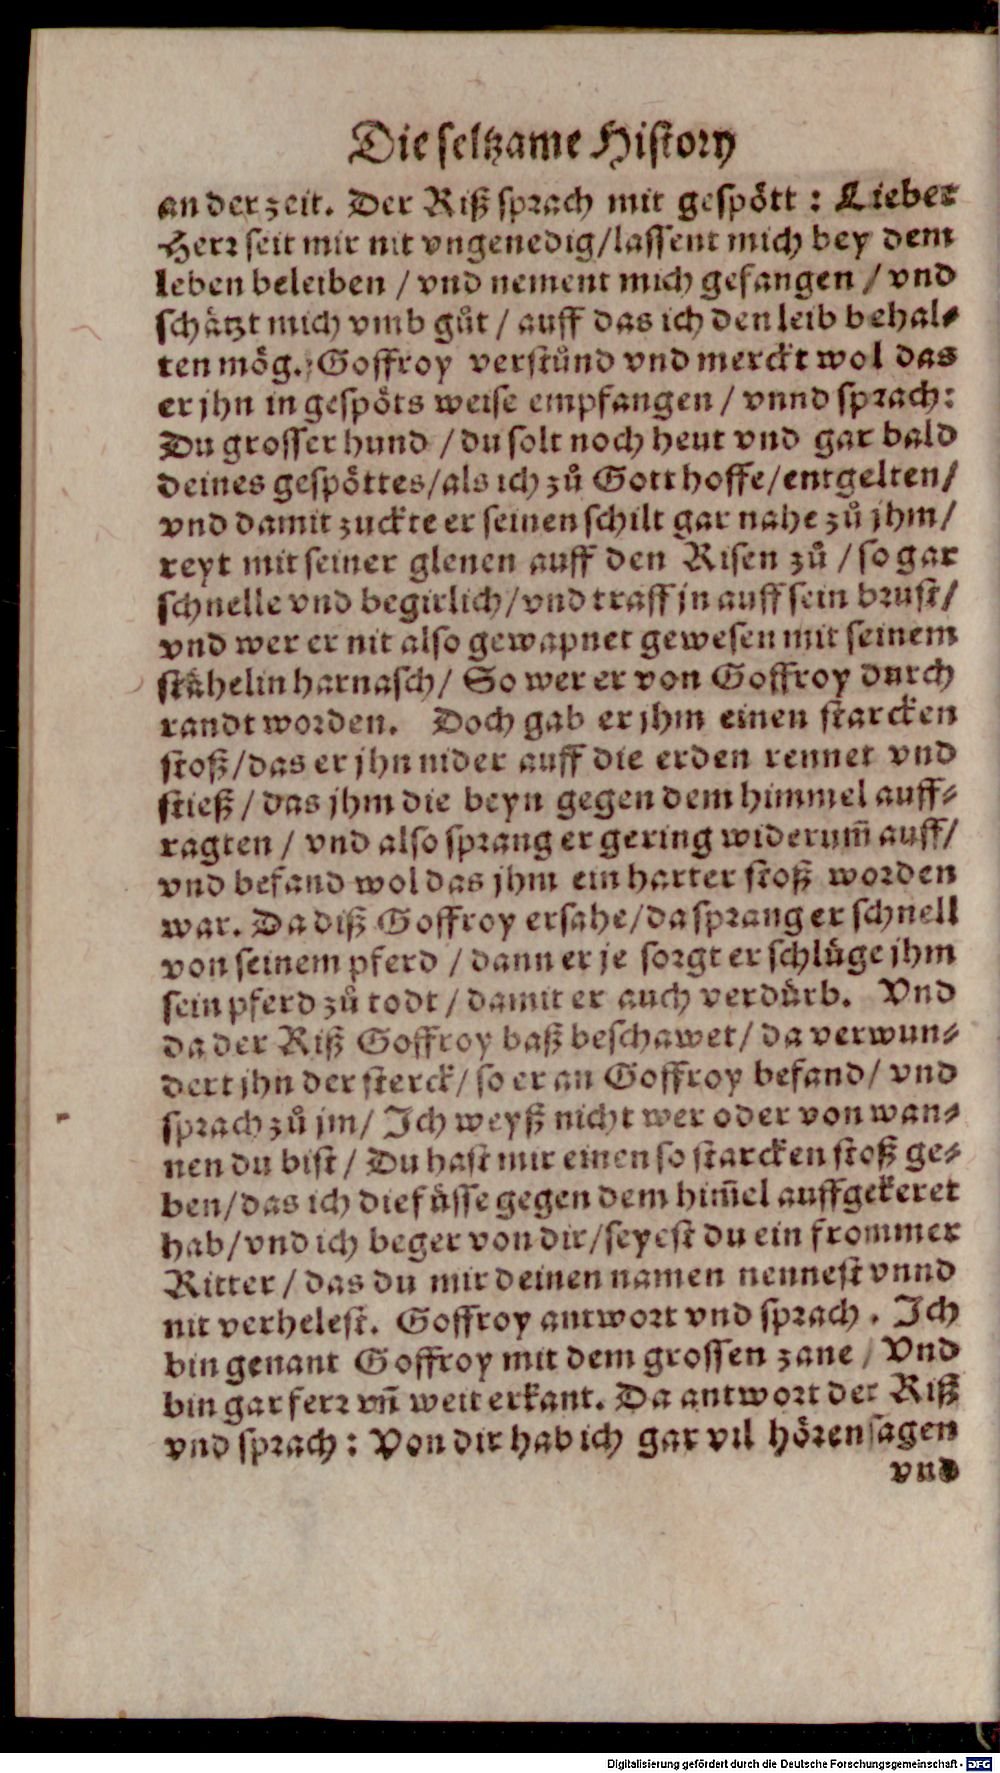 Die seltzame History
an der zeit. Der Riß sprach mit gespött : Lieber
Herr seit mir nit vngenedig/lassent mich bey dem
leben beleiben / vnd nement mich gefangen / vnd
schätzt mich vmb gůt / auff das ich den leib behal-
ten mög. Goffroy verstůnd vnd merckt wol das
er jhn in gespöts weise empfangen / vnnd sprach:
Du grosser hund / du solt noch heut vnd gar bald
deines gespöttes/als ich zů Gott hoffe/entgelten/
vnd damit zuckte er seinen schilt gar nahe zů jhm/
reyt mit seiner glenen auff den Risen zů / so gar
schnelle vnd begirlich/vnd traff jn auff sein brust/
vnd wer er nit also gewapnet gewesen mit seinem
stähelin harnasch/ So wer er von Goffroy durch
randt worden. Doch gab er jhm einen starcken
stoß/das er jhn nider auff die erden rennet vnd
stieß / das jhm die beyn gegen dem himmel auff-
ragten / vnd also sprang er gering widerum̃ auff/
vnd befand wol das jhm ein harter stoß worden
war. Da diß Goffroy ersahe/da sprang er schnell
von seinem pferd / dann er je sorgt er schlüge jhm
sein pferd zů todt / damit er auch verdürb. Vnd
da der Riß Goffroy baß beschawet/ da verwun-
dert jhn der sterck/ so er an Goffroy befand/ vnd
sprach zů jm/ Ich weyß nicht wer oder von wan-
nen du bist / Du hast mir einen so starcken stoß ge-
ben/das ich die füsse gegen dem him̃el auffgekeret
hab/vnd ich beger von dir/seyest du ein frommer
Ritter / das du mir deinen namen nennest vnnd
nit verhelest. Goffroy antwort vnd sprach. Ich
bin genant Goffroy mit dem grossen zane / Vnd
bin gar ferr vñ weit erkant. Da antwort der Riß
vnd sprach : Von dir hab ich gar vil hören sagen
vnd
Digitalisierung gefördert durch die Deutsche Forschungsgemeinschaft - DFG